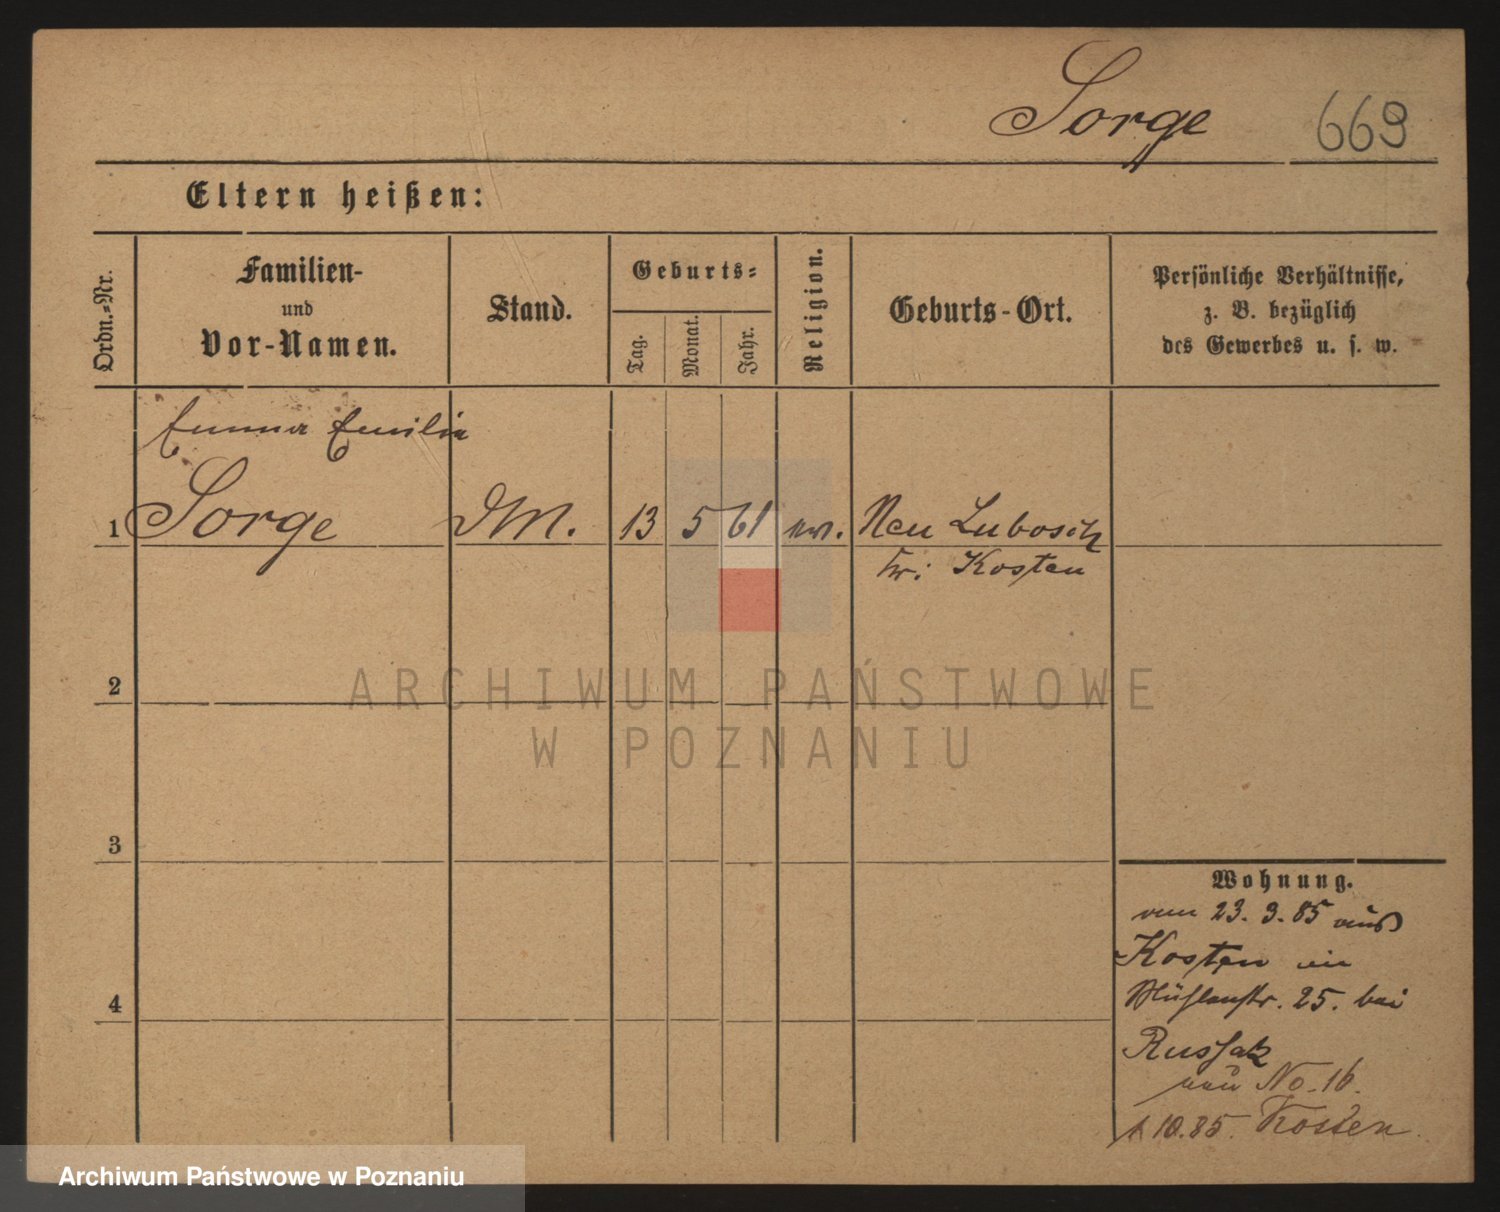 Sorge 669
Eltern heißen:
Ordn.=Nr.
Familien-
und
Vor-Namen.
Stand.
Geburts=
Tag.
Monat.
Jahr.
Religion.
Geburts-Ort.
Persönliche Verhältnisse,
z. B. bezüglich
des Gewerbes u. s. w.
Emma Emilie
1 Sorge DM. 13 5 61 ev. Neu Lubosch
Kr: Kosten
2
3
4
Wohnung.
vom 23. 3. 85 aus
Kosten in
Mühlenstr. 25. bei
Russak
neu No. 16.
10.85. Kosten
ARCHIWUM PAŃSTWOWE
W POZNANIU
Archiwum Państwowe w Poznaniu